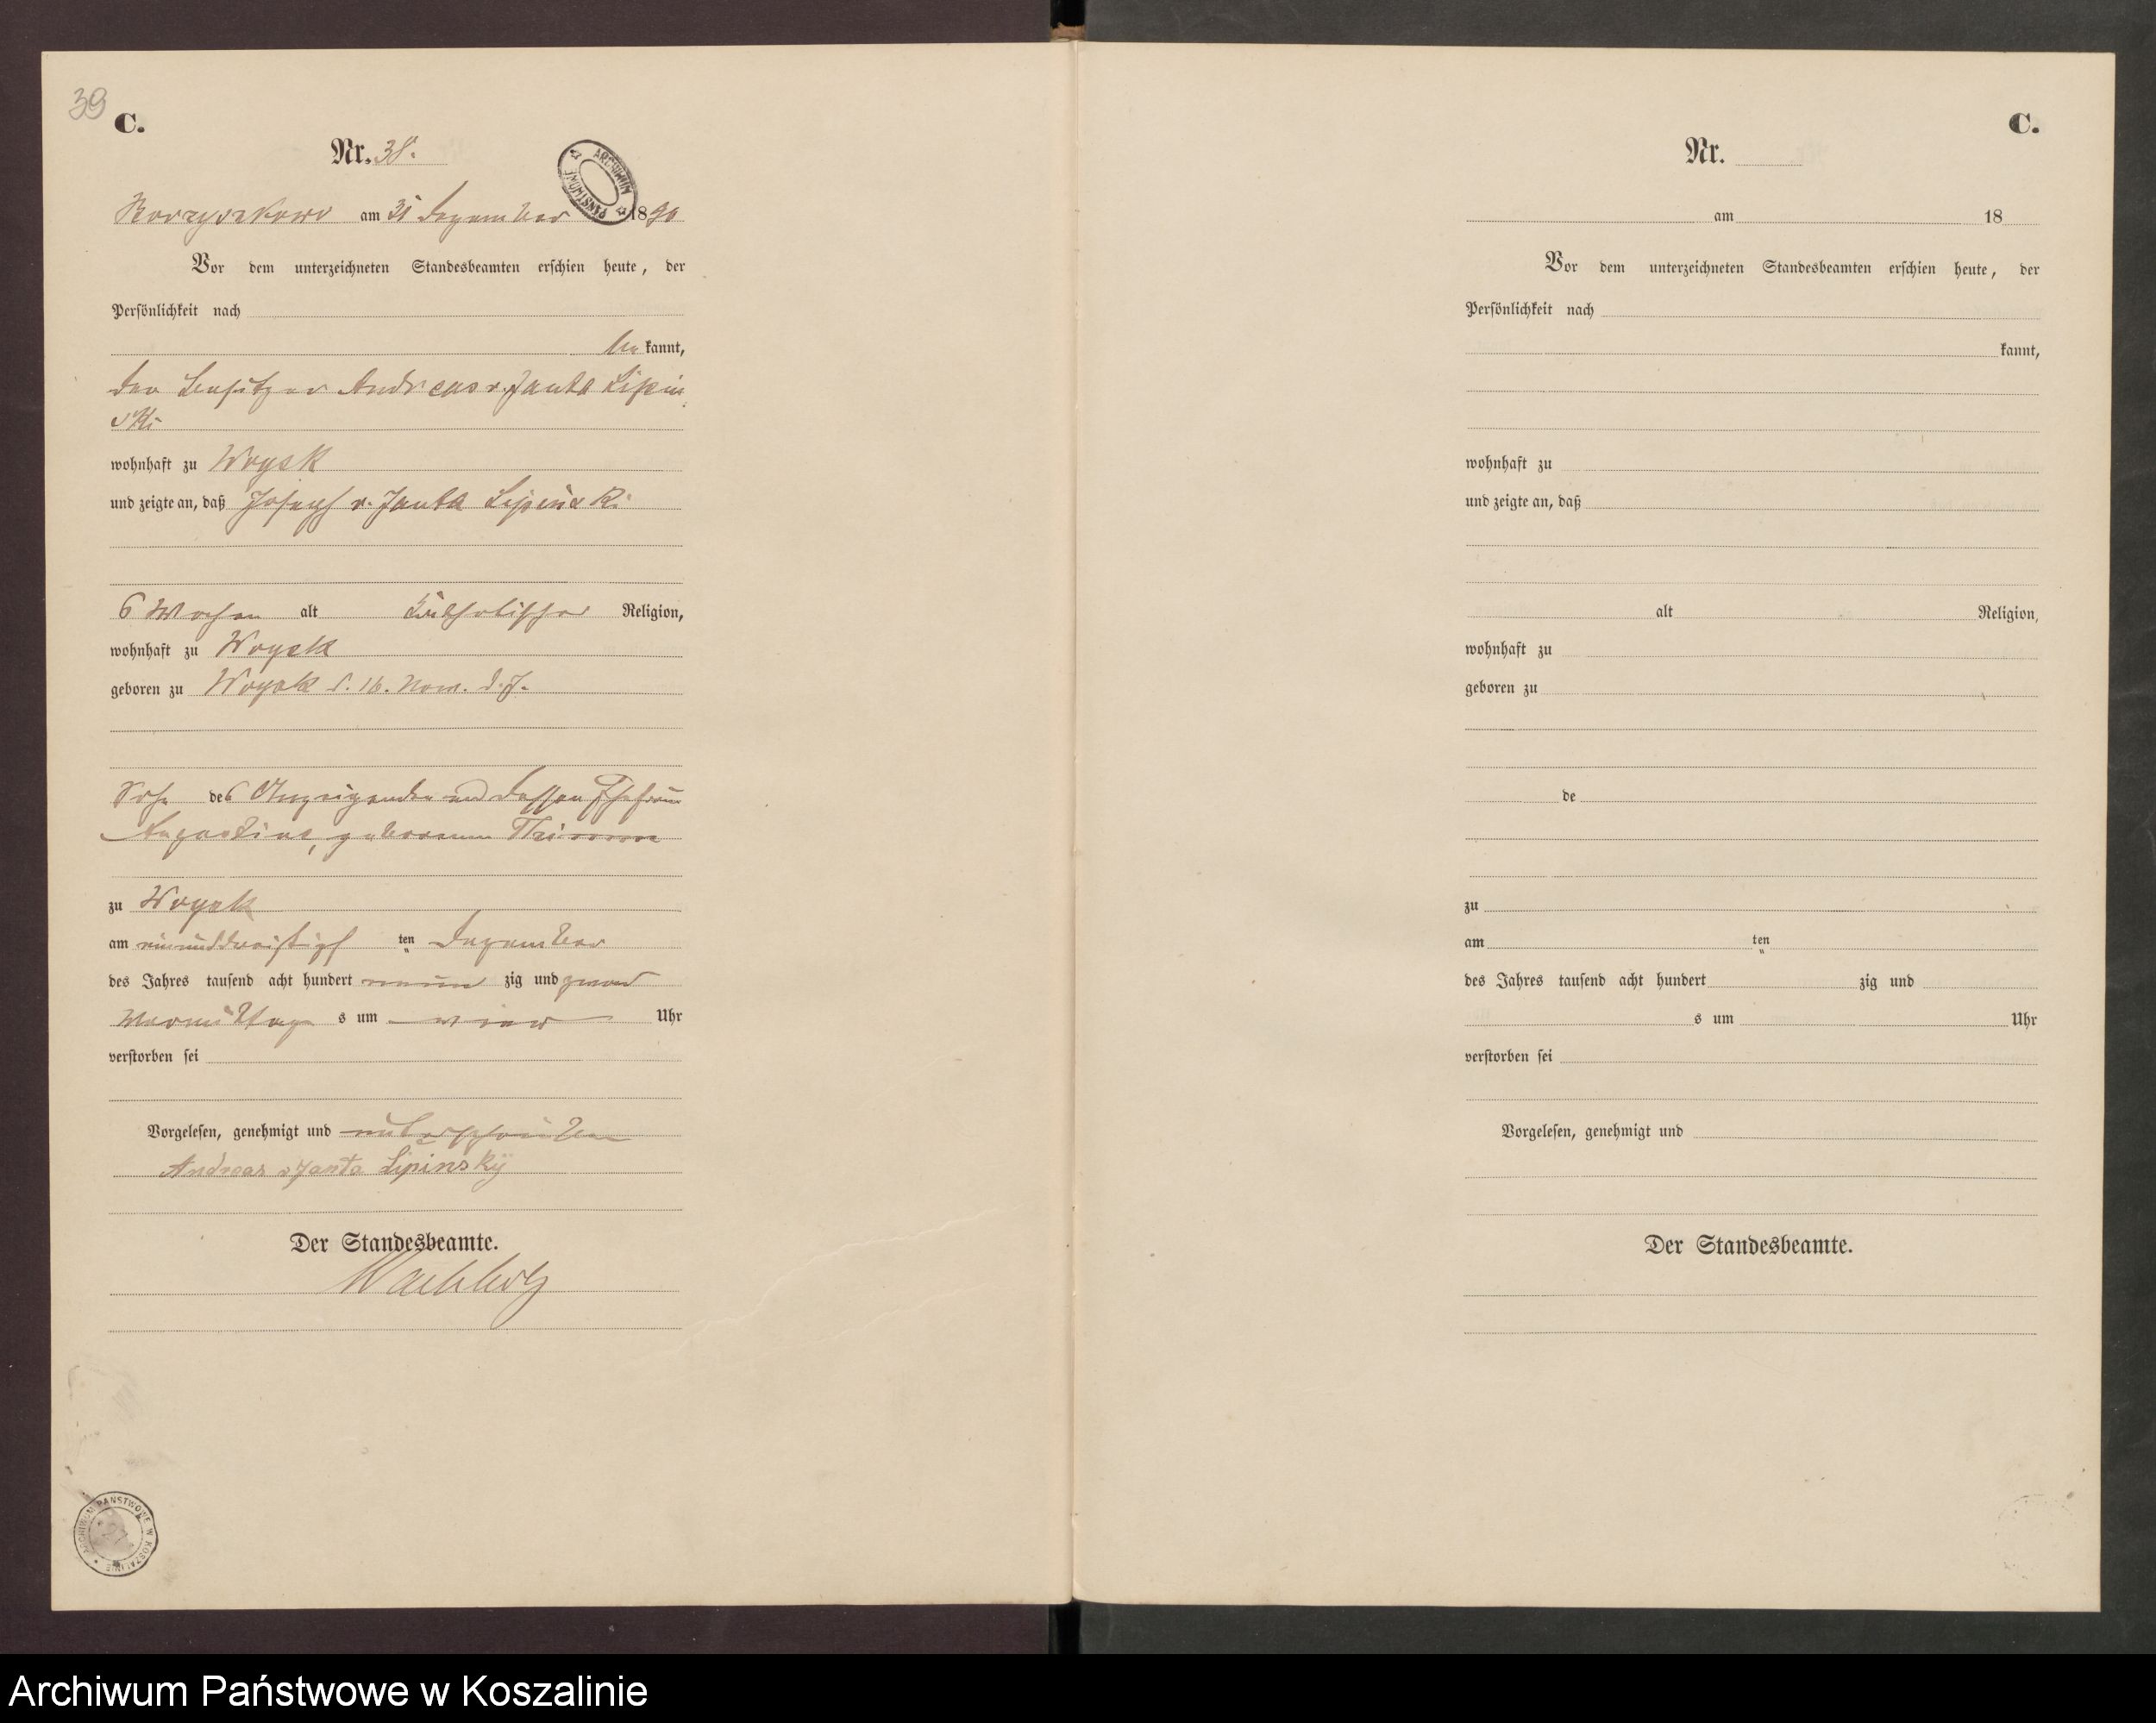 39
C.
Nr. 38.
ARCHIWUM PAŃSTWOWE
Borzyszkowo am 31 Dezember 1890
Vor dem unterzeichneten Standesbeamten erschien heute, der
Persönlichkeit nach
bekannt,
der Besitzer Andreas v. Janta Lipin
ski
wohnhaft zu Woysk
und zeigte an, daß Joseph v. Janta Lipinski
6 Wochen alt katholischer Religion,
wohnhaft zu Woysk
geboren zu Woysk d. 16. Nov. d. J.
Sohn des Anzeigenden und dessen Ehefrau
geborenen
zu Woysk
am einunddreißigst ten Dezember
des Jahres tausend acht hundert neun zig und zwar
Vormittag s um vier Uhr
verstorben sei
Vorgelesen, genehmigt und unterschrieben
Andreas v Janta Lipinsky
Der Standesbeamte.
Wachholz
ARCHIWUM PAŃSTWOWE W KOSZALINIE
C.
Nr.
am 18
Vor dem unterzeichneten Standesbeamten erschien heute, der
Persönlichkeit nach
kannt,
wohnhaft zu
und zeigte an, daß
alt Religion,
wohnhaft zu
geboren zu
de
zu
am ten
des Jahres tausend acht hundert zig und
s um Uhr
verstorben sei
Vorgelesen, genehmigt und
Der Standesbeamte.
Archiwum Państwowe w Koszalinie